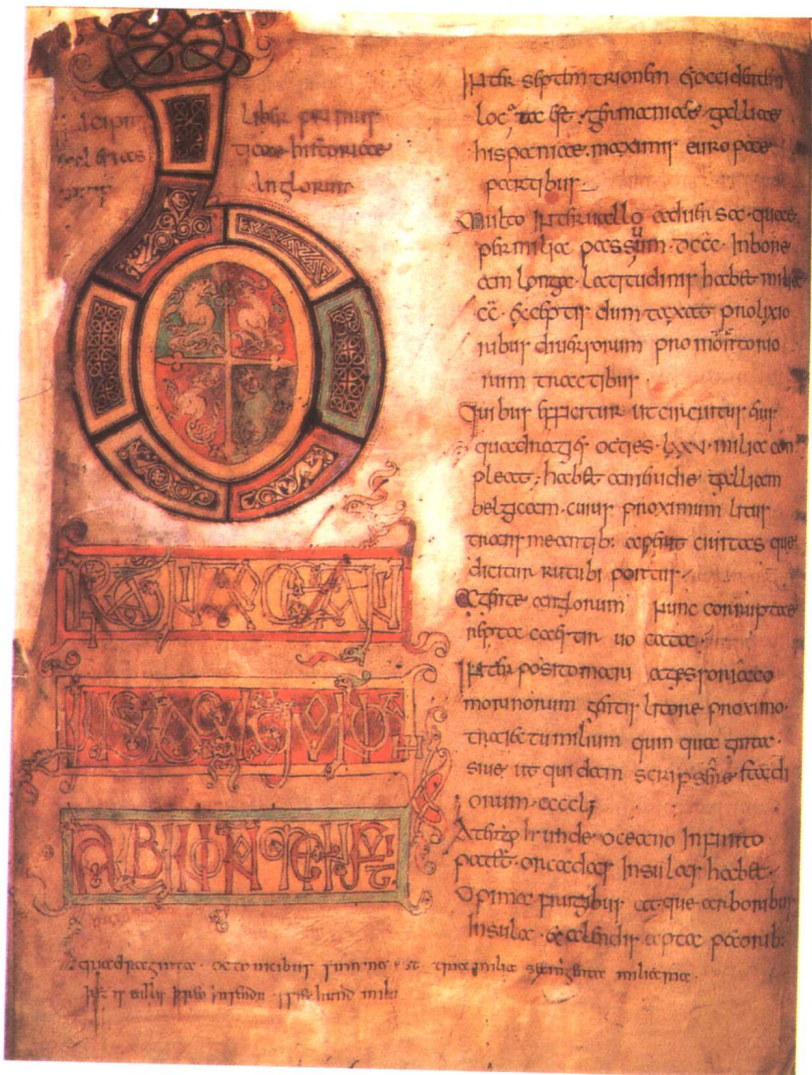 Incipit liber primus
ecclesias ticae historiae
Anglorum
BRITTANIA OCEANI
INSULA CUI QUONDAM
ALBION NOMEN FUIT
quadraginta. octo summa est tria milia miliaria.
Inter septemtrionem & occidentem
locata est. germaniae galliae
hispaniae. maximis europae
partibus
Multo interuallo aduersa. quae
per milia passuum. dccc. In bore
am longa. latitudinis habet milia
cc. exceptis dum taxat prolixio
ribus diuersorum promontorio
rum tractibus.
Quibus efficitur ut circuitus eius
quadragies octies. lxxv. milia com
pleat; habet a meridie galliam
belgicam. cuius proximum litus
transmeantib: aperit ciuitas que
dicitur rutubi portus.
A gente anglorum nunc corruptae
reptacaestir uocata
Interposito mari a gesoriaco
morinorum gentis litore proximo.
traiectu milium quinquaginta.
siue ut quidam scripsere stadi
orum. ccccl;
A tergo unde oceano Infinito
patet. orcadas Insulas habet.
Opima frugibus atque arboribus
Insula. & alendis apta pecorib: